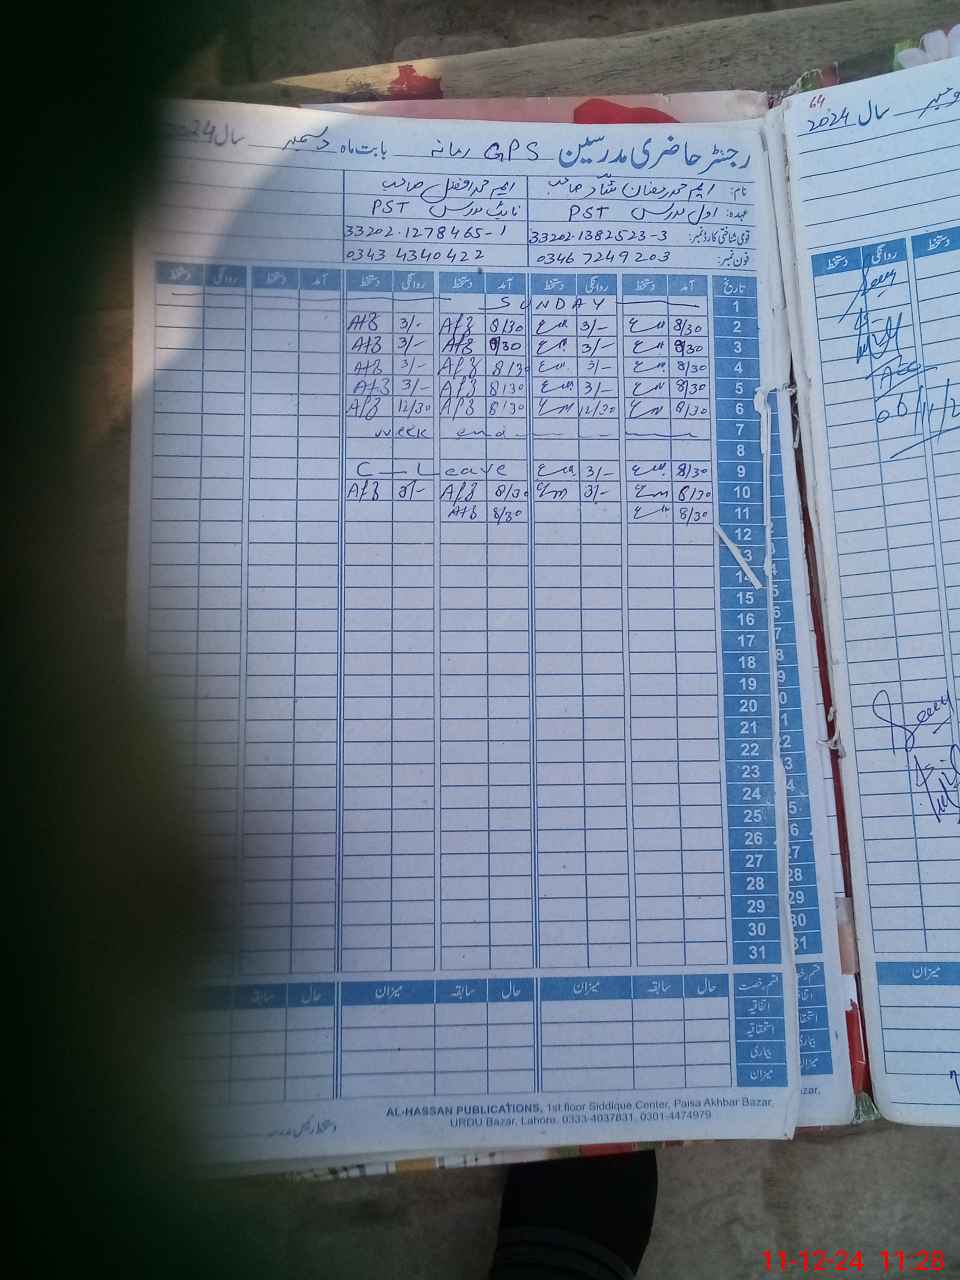 رجسٹر حاضری مدرسین GPS بابت ماہ دسمبر سال 2024
نام: ایم محمد رمضان شاد صاحب ایم محمد افضل صاحب
عہدہ: اول مدرس PST نائب مدرس PST
قومی شناختی کارڈ نمبر: 33202-1382523-3 33202-1278465-1
فون نمبر: 0346 7249203 0343 4340422
تاریخ آمد دستخط روانگی دستخط آمد دستخط روانگی دستخط آمد دستخط روانگی دستخط
1 SUNDAY
2 8/30 3/- 8/30 Afz 3/- Afz
3 8/30 3/- 8/30 Afz 3/- Afz
4 8/30 3/- 8/30 Afz 3/- Afz
5 8/30 3/- 8/30 Afz 3/- Afz
6 8/30 12/30 8/30 Afz 12/30 Afz
7 week end
8
9 8/30 3/- C-Leave
10 8/30 3/- 8/30 Afz 3/- Afz
11 8/30 8/30 Afz
12
13
14
15
16
17
18
19
20
21
22
23
24
25
26
27
28
29
30
31
قسم رخصت حال سابقہ میزان حال سابقہ میزان حال سابقہ
اتفاقیہ
استحقاقیہ
بیماری
میزان
AL-HASSAN PUBLICATIONS, 1st floor Siddique Center, Paisa Akhbar Bazar,
URDU Bazar, Lahore. 0333-4037831, 0301-4474979
64
سال 2024
روانگی دستخط دستخط
06/11/2
میزان
zar,
11-12-24 11:28